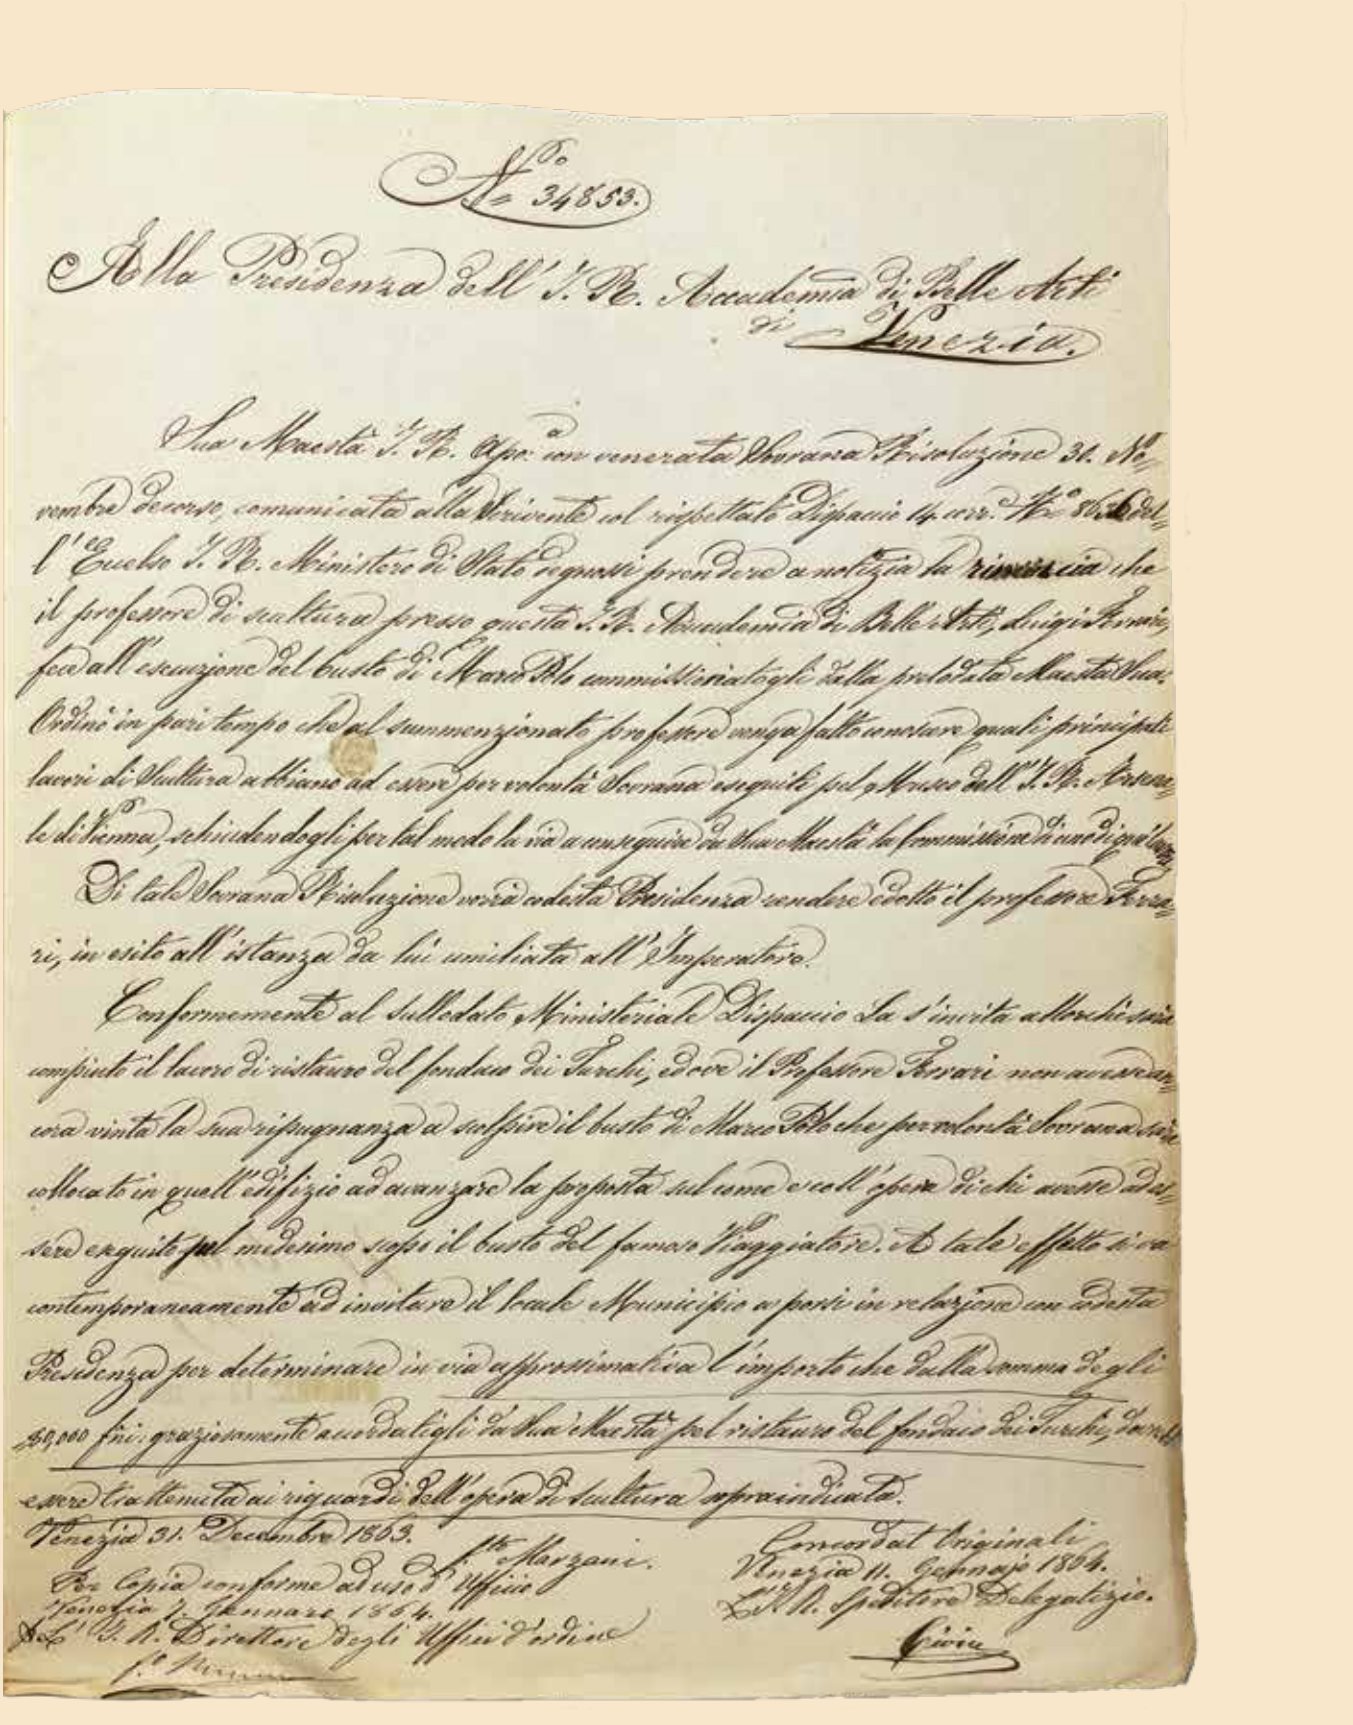 N.º 34853.
Alla Presidenza dell' I. R. Accademia di Belle Arti
di Venezia.
Sua Maestà I. R. Apo:ª con venerata Sovrana Risoluzione 30. No=
vembre decorso, comunicata alla Scrivente col rispettato Dispaccio 14. corr.e N.º del=
l'Eccelso I. R. Ministero di Stato degnossi prendere a notizia la rinuncia che
il professore di scultura presso questa I. R. Accademia di Belle Arti, Luigi Ferrari,
fece all'esecuzione del busto di Marco Polo commissionatogli dalla prelodata Maestà Sua.
Ordinò in pari tempo che al summenzionato professore venga fatto conoscere quali principali
lavori di Scultura abbiano ad essere per volontà Sovrana eseguiti pel Museo dell' I. R. Arsena=
le di Vienna, schiudendogli per tal modo la via a conseguire da Sua Maestà la Commissione di uno di que' lavori.
Di tale Sovrana Risoluzione vorrà codesta Presidenza rendere edotto il professore Ferra=
ri, in esito all'istanza da lui umiliata all'Imperatore.
Conformemente al sullodato Ministeriale Dispaccio La s'invita allorchè sarà
compiuto il lavoro di ristauro del fondaco dei Turchi, ed ove il Professore Ferrari non avesse an=
cora vinta la sua ripugnanza a scolpire il busto di Marco Polo che per volontà Sovrana sarà
collocato in quell'edifizio ad avanzare la proposta sul come e coll'opera di chi avesse ad es=
sere eseguito pel medesimo scopo il busto del famoso Viaggiatore. A tale effetto si va
contemporaneamente ad invitare il locale Municipio a porsi in relazione con codesta
Presidenza per determinare in via approssimativa l'importo che dalla somma degli
80,000 fni: graziosamente accordatigli da Sua Maestà pel ristauro del fondaco dei Turchi, dovrebbe
essere trattenuta ai riguardi dell'opera di scultura sopraindicata.
Venezia 31. Decembre 1863.
f.to Marzani.
Per Copia conforme ad uso d'Ufficio
Venezia 7. Gennaro 1864.
L' I. R. Direttore degli Uffici d'ordine
Concordat Originali
Venezia 11. Gennajo 1864.
L' I. R. Speditore Delegatizio.